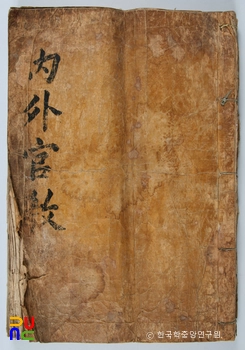 內外官攷
© 한국학중앙연구원